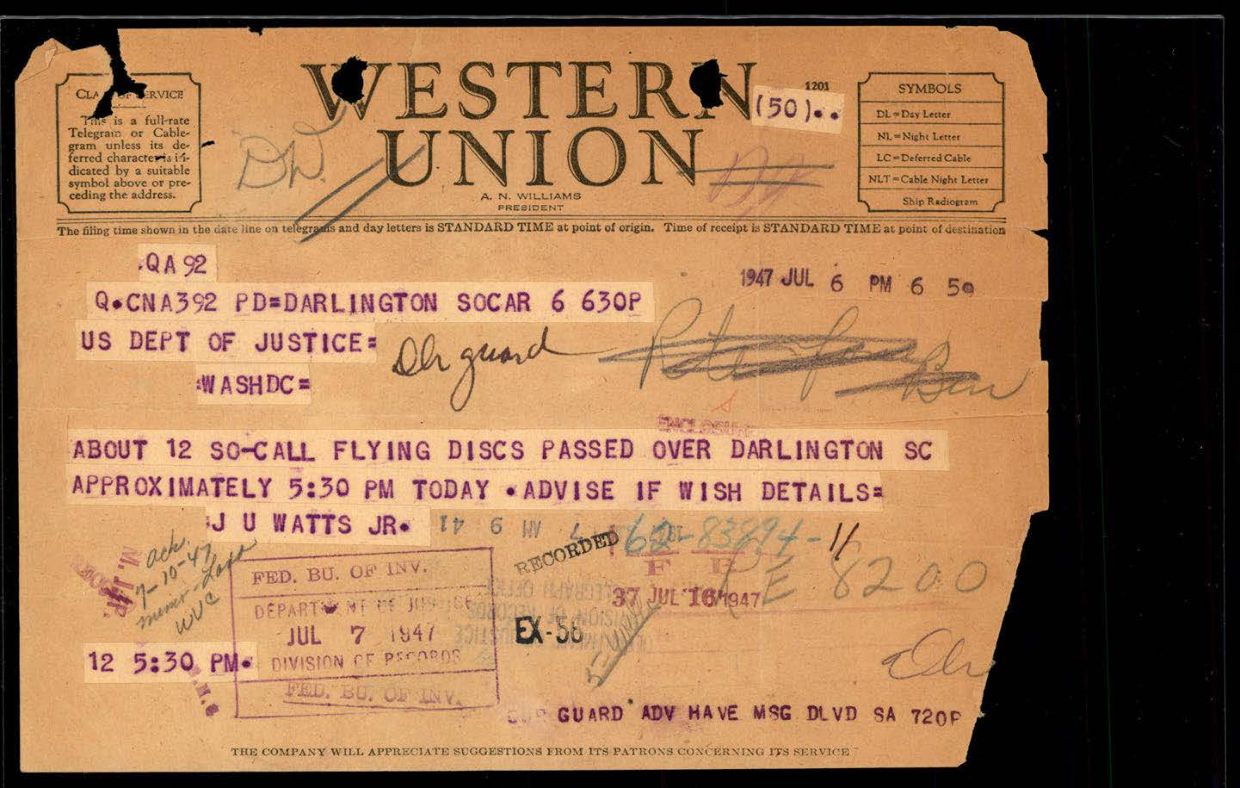 WESTERN
UNION
1201
(50)..
A. N. WILLIAMS
PRESIDENT
This is a full-rate
Telegram or Cable-
gram unless its de-
ferred character is in-
dicated by a suitable
symbol above or pre-
ceding the address.
DW.
SYMBOLS
DL=Day Letter
NL=Night Letter
LC=Deferred Cable
NLT=Cable Night Letter
Ship Radiogram
The filing time shown in the date line on telegrams and day letters is STANDARD TIME at point of origin. Time of receipt is STANDARD TIME at point of destination
.QA92
1947 JUL 6 PM 6 50
Q.CNA392 PD=DARLINGTON SOCAR 6 630P
US DEPT OF JUSTICE=
guard
:WASHDC=
ABOUT 12 SO-CALL FLYING DISCS PASSED OVER DARLINGTON SC
APPROXIMATELY 5:30 PM TODAY .ADVISE IF WISH DETAILS=
:J U WATTS JR.
62-83894-11
RECORDED
ack.
7-10-47
WVC
FED. BU. OF INV.
DEPARTMENT OF JUSTICE
JUL 7 1947
DIVISION OF RECORDS
FED. BU. OF INV.
F B
37 JUL 16 1947
E 8200
EX-56
12 5:30 PM.
GUARD ADV HAVE MSG DLVD SA 720P
THE COMPANY WILL APPRECIATE SUGGESTIONS FROM ITS PATRONS CONCERNING ITS SERVICE